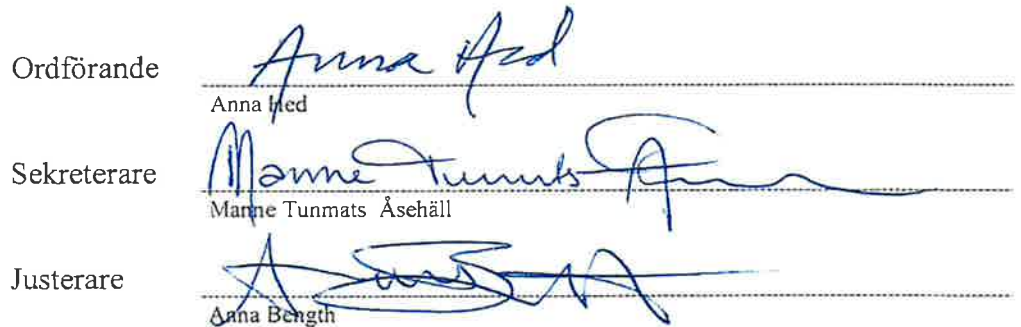 Ordförande Anna Hed
Anna Hed
Sekreterare Manne Tunmats
Manne Tunmats Åsehäll
Justerare
Anna Bength